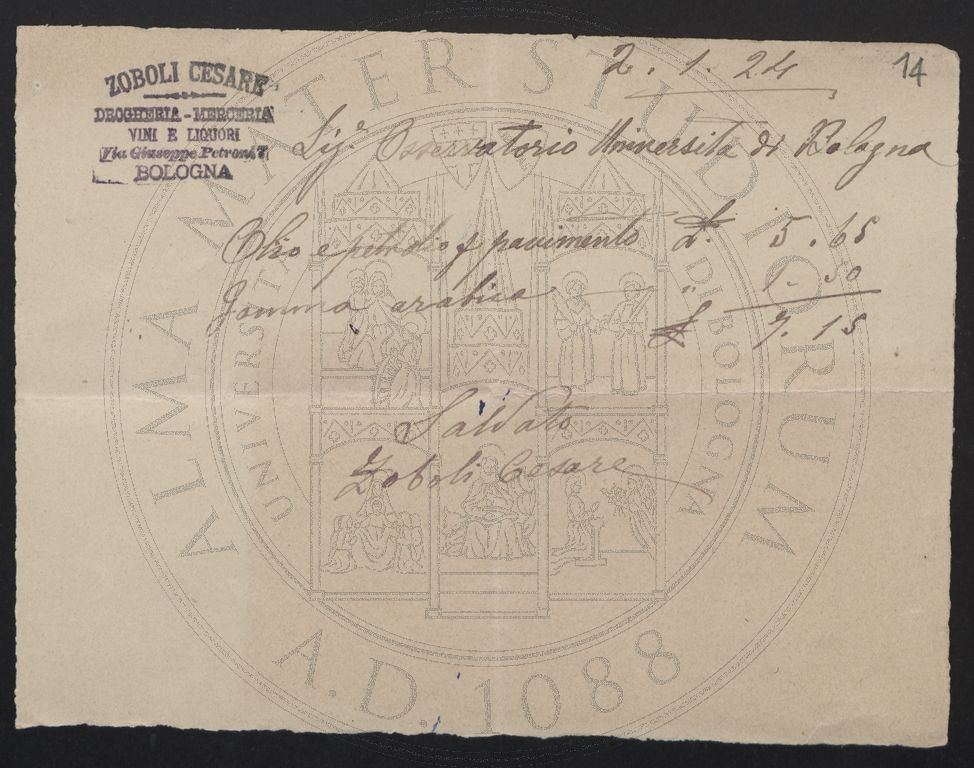 ZOBOLI CESARE
DROGHERIA - MERCERIA
VINI E LIQUORI
Via Giuseppe Petroni, 7
BOLOGNA
2. 1. 24
14
Sig. Osservatorio Università di Bologna
Olio e petrolio p pavimento £. 5.65
Gomma arabica " 1.50
£ 7.15
Saldato
Zoboli Cesare
ALMA MATER STUDIORUM
UNIVERSITÀ DI BOLOGNA
A.D. 1088